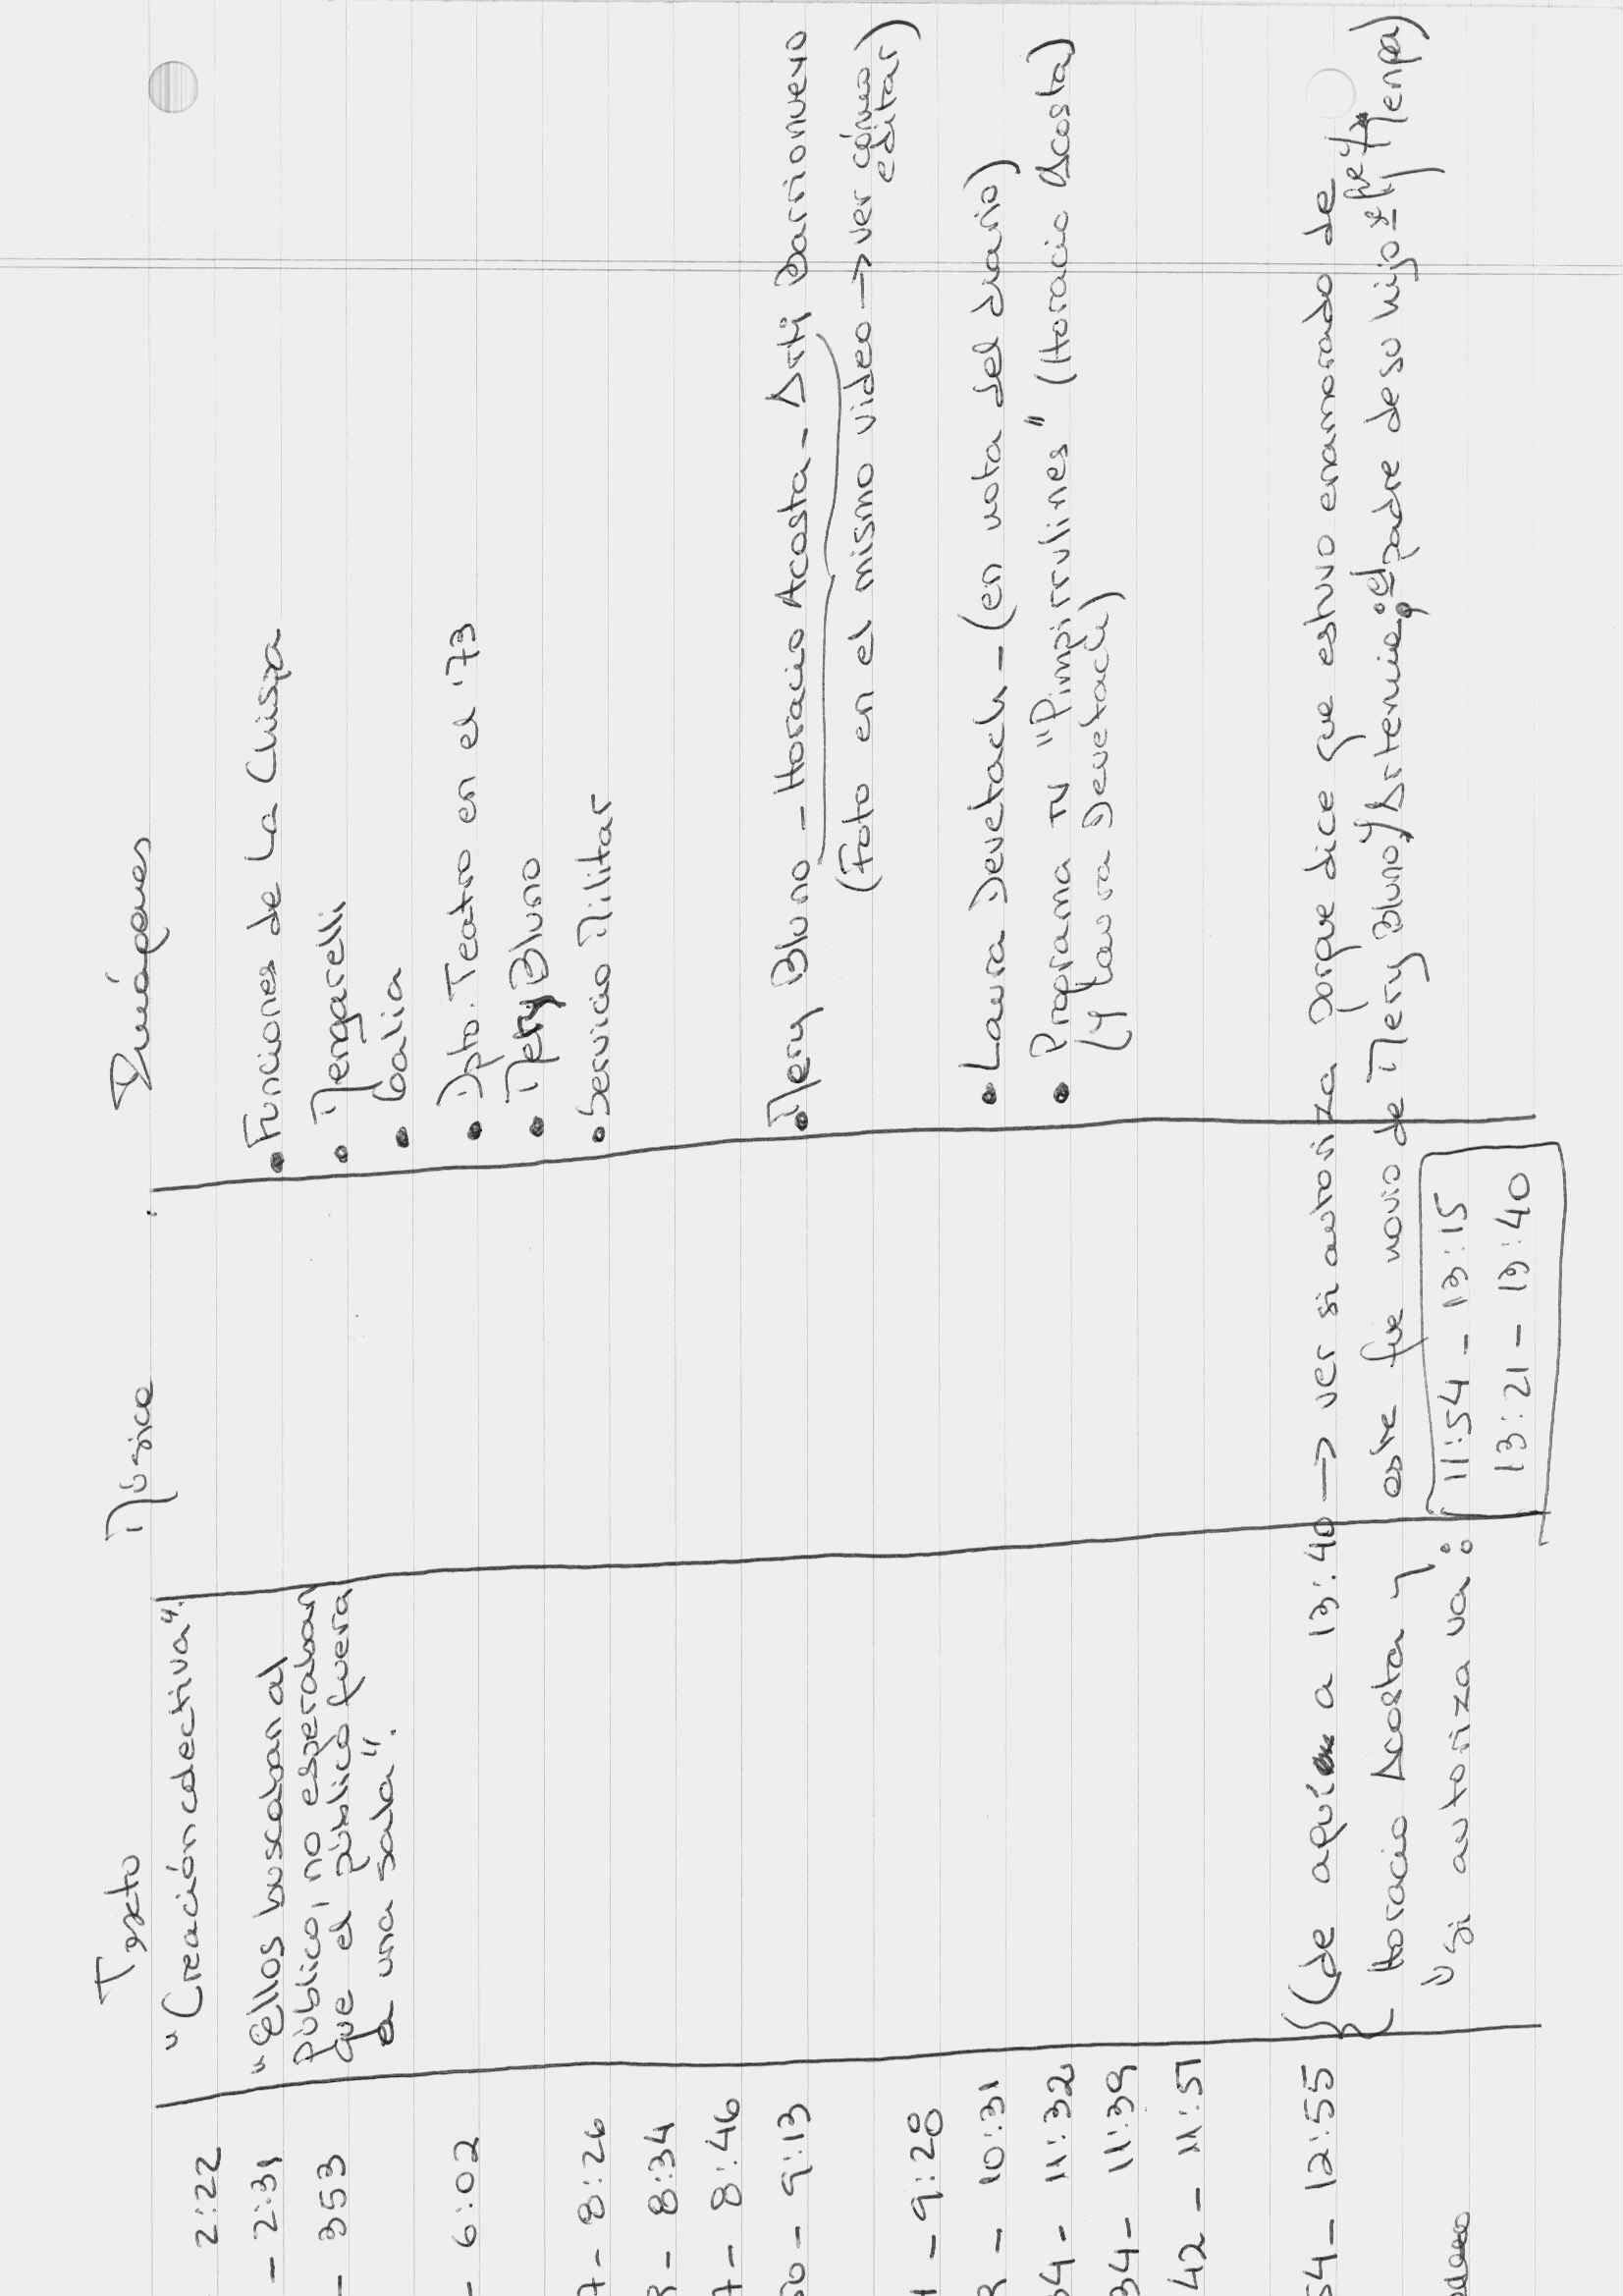 Texto Música Imágenes
2:22 "Creación colectiva".
- 2:31 "Ellos buscaban al • Funciones de La Chispa
público, no esperaban
- 353 que el público fuera • Mengarelli
a una sala". • Galia
- 6:02 • Dpto. Teatro en el '73
• Mery Bluno
7 - 8:26 • Servicio Militar
8 - 8:34
7 - 8:46
50 - 9:13 • Mery Bluno - Horacio Acosta - Arti Barrionuevo
(Foto en el mismo video → ver cómo editar)
1 - 9:20
8 - 10:31 • Laura Devetach - (en nota del diario)
54 - 11:32 • Programa TV "Pimpirrulines" (Horacio Acosta)
34 - 11:39 (y Laura Devetach)
42 - 11:51
54 - 12:55 (de aquí a 13:40 → ver si autoriza porque dice que estuvo enamorado de
Horacio Acosta y este fue novio de Mery Bluno y Artemia; el padre de su hijo fue
"Si autoriza va: 11:54 - 13:15
13:21 - 13:40